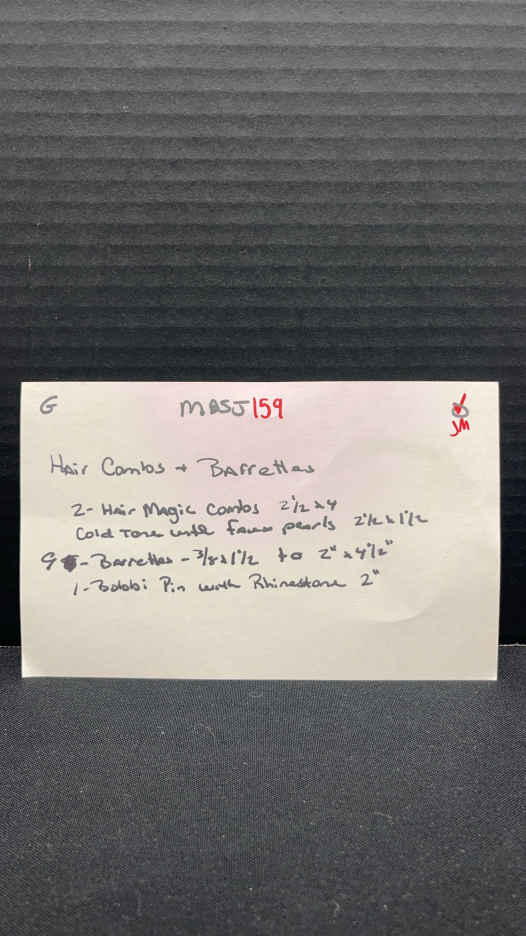 G MBSJ159
JM
Hair Combs + Barrettes
2- Hair Magic Combs 2 1/2 x 4
Gold Tone with faux pearls 2 1/2 x 1 1/2
9 - Barrettes - 3/8 x 1 1/2 to 2" x 4 1/2"
1- Bobbi Pin with Rhinestone 2"